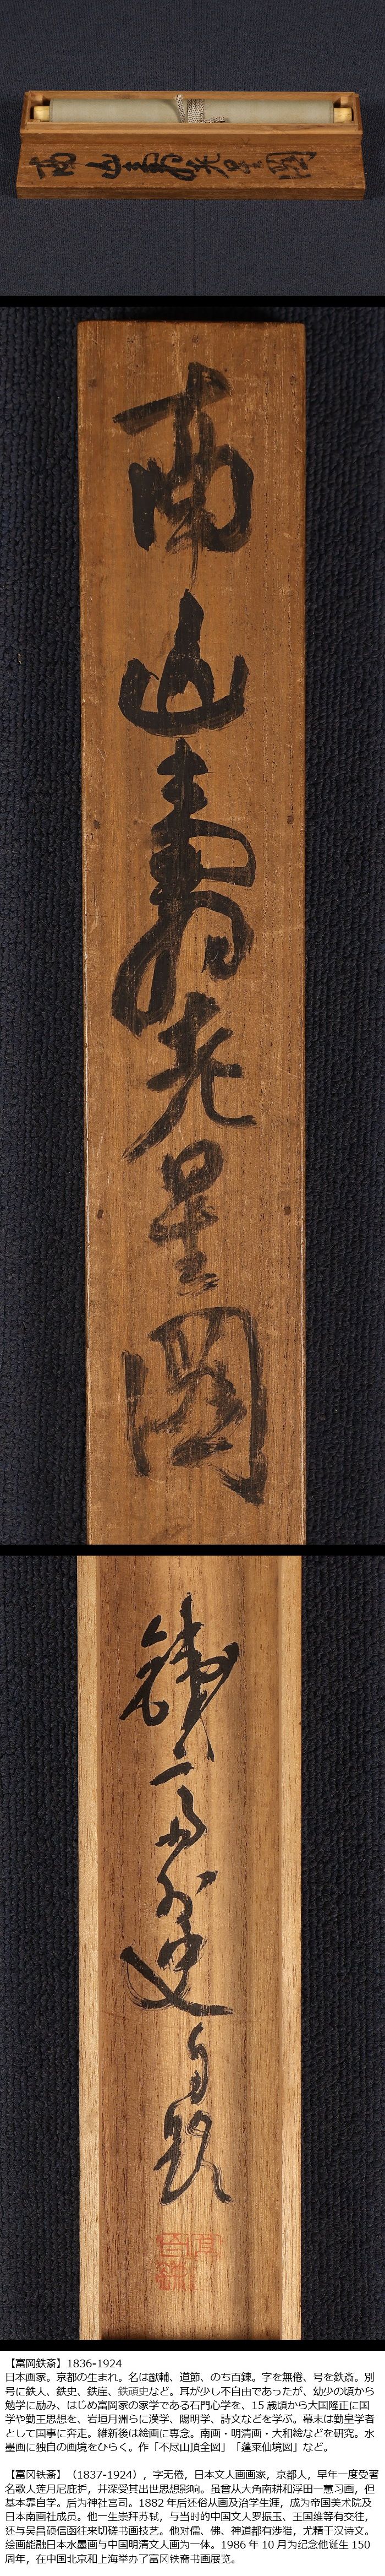 南山寿老星図
南
山
寿
老
星
図
鉄
斎
外
史
自
題
【富岡鉄斎】1836-1924
日本画家。京都の生まれ。名は猷輔、道節、のち百錬。字を無倦、号を鉄斎。別
号に鉄人、鉄史、鉄崖、鉄頑史など。耳が少し不自由であったが、幼少の頃から
勉学に励み、はじめ富岡家の家学である石門心学を、15歳頃から大国隆正に国
学や勤王思想を、岩垣月洲らに漢学、陽明学、詩文などを学ぶ。幕末は勤皇学者
として国事に奔走。維新後は絵画に専念。南画・明清画・大和絵などを研究。水
墨画に独自の画境をひらく。作「不尽山頂全図」「蓬莱仙境図」など。
【富冈铁斎】（1837-1924），字无倦，日本文人画画家，京都人，早年一度受著
名歌人莲月尼庇护，并深受其出世思想影响。虽曾从大角南耕和浮田一蕙习画，但
基本靠自学。后为神社宫司。1882年后还俗从画及治学生涯，成为帝国美术院及
日本南画社成员。他一生崇拜苏轼，与当时的中国文人罗振玉、王国维等有交往，
还与吴昌硕信函往来切磋书画技艺。他对儒、佛、神道都有涉猎，尤精于汉诗文。
绘画能融日本水墨画与中国明清文人画为一体。1986年10月为纪念他诞生150
周年，在中国北京和上海举办了富冈铁斋书画展览。